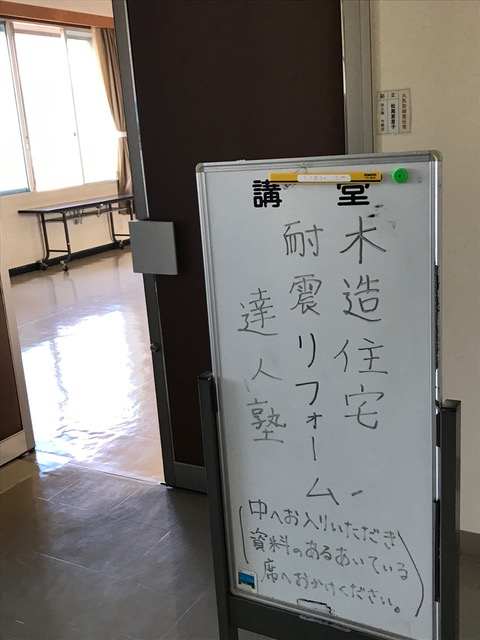 講堂
木造住宅
耐震リフォーム
達人塾
(中へお入りいただき
資料のあるあいている
席へおかけください。)
火気取締責任者